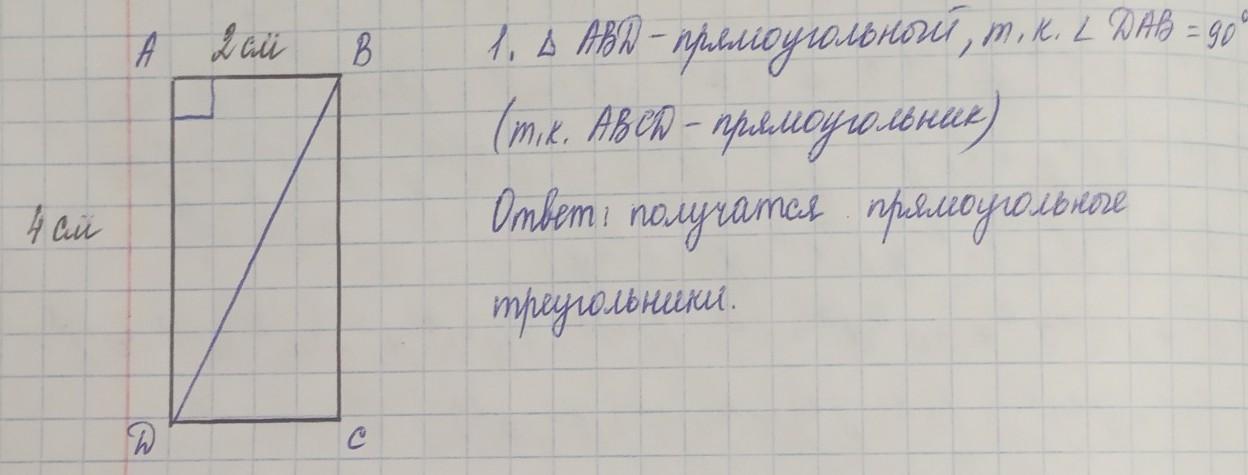 A 2 см B
1. Δ ABD - прямоугольный, т.к. ∠ DAB = 90°
(т.к. ABCD - прямоугольник)
4 см
Ответ: получатся прямоугольные
треугольники.
D C